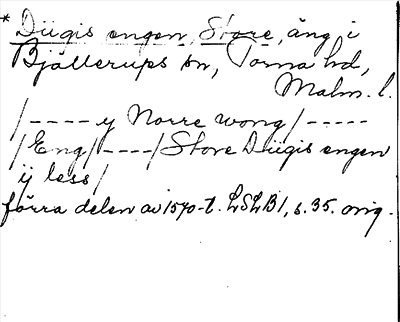 * Diigis engen, Store, äng i
Bjällerups sn, Torna hd,
Malm. l.
/---- y Norre wong/-----
/Eng/----/Store Diigis engen
ij less/
förra delen av 1570-t. LSLB1, s. 35. orig.